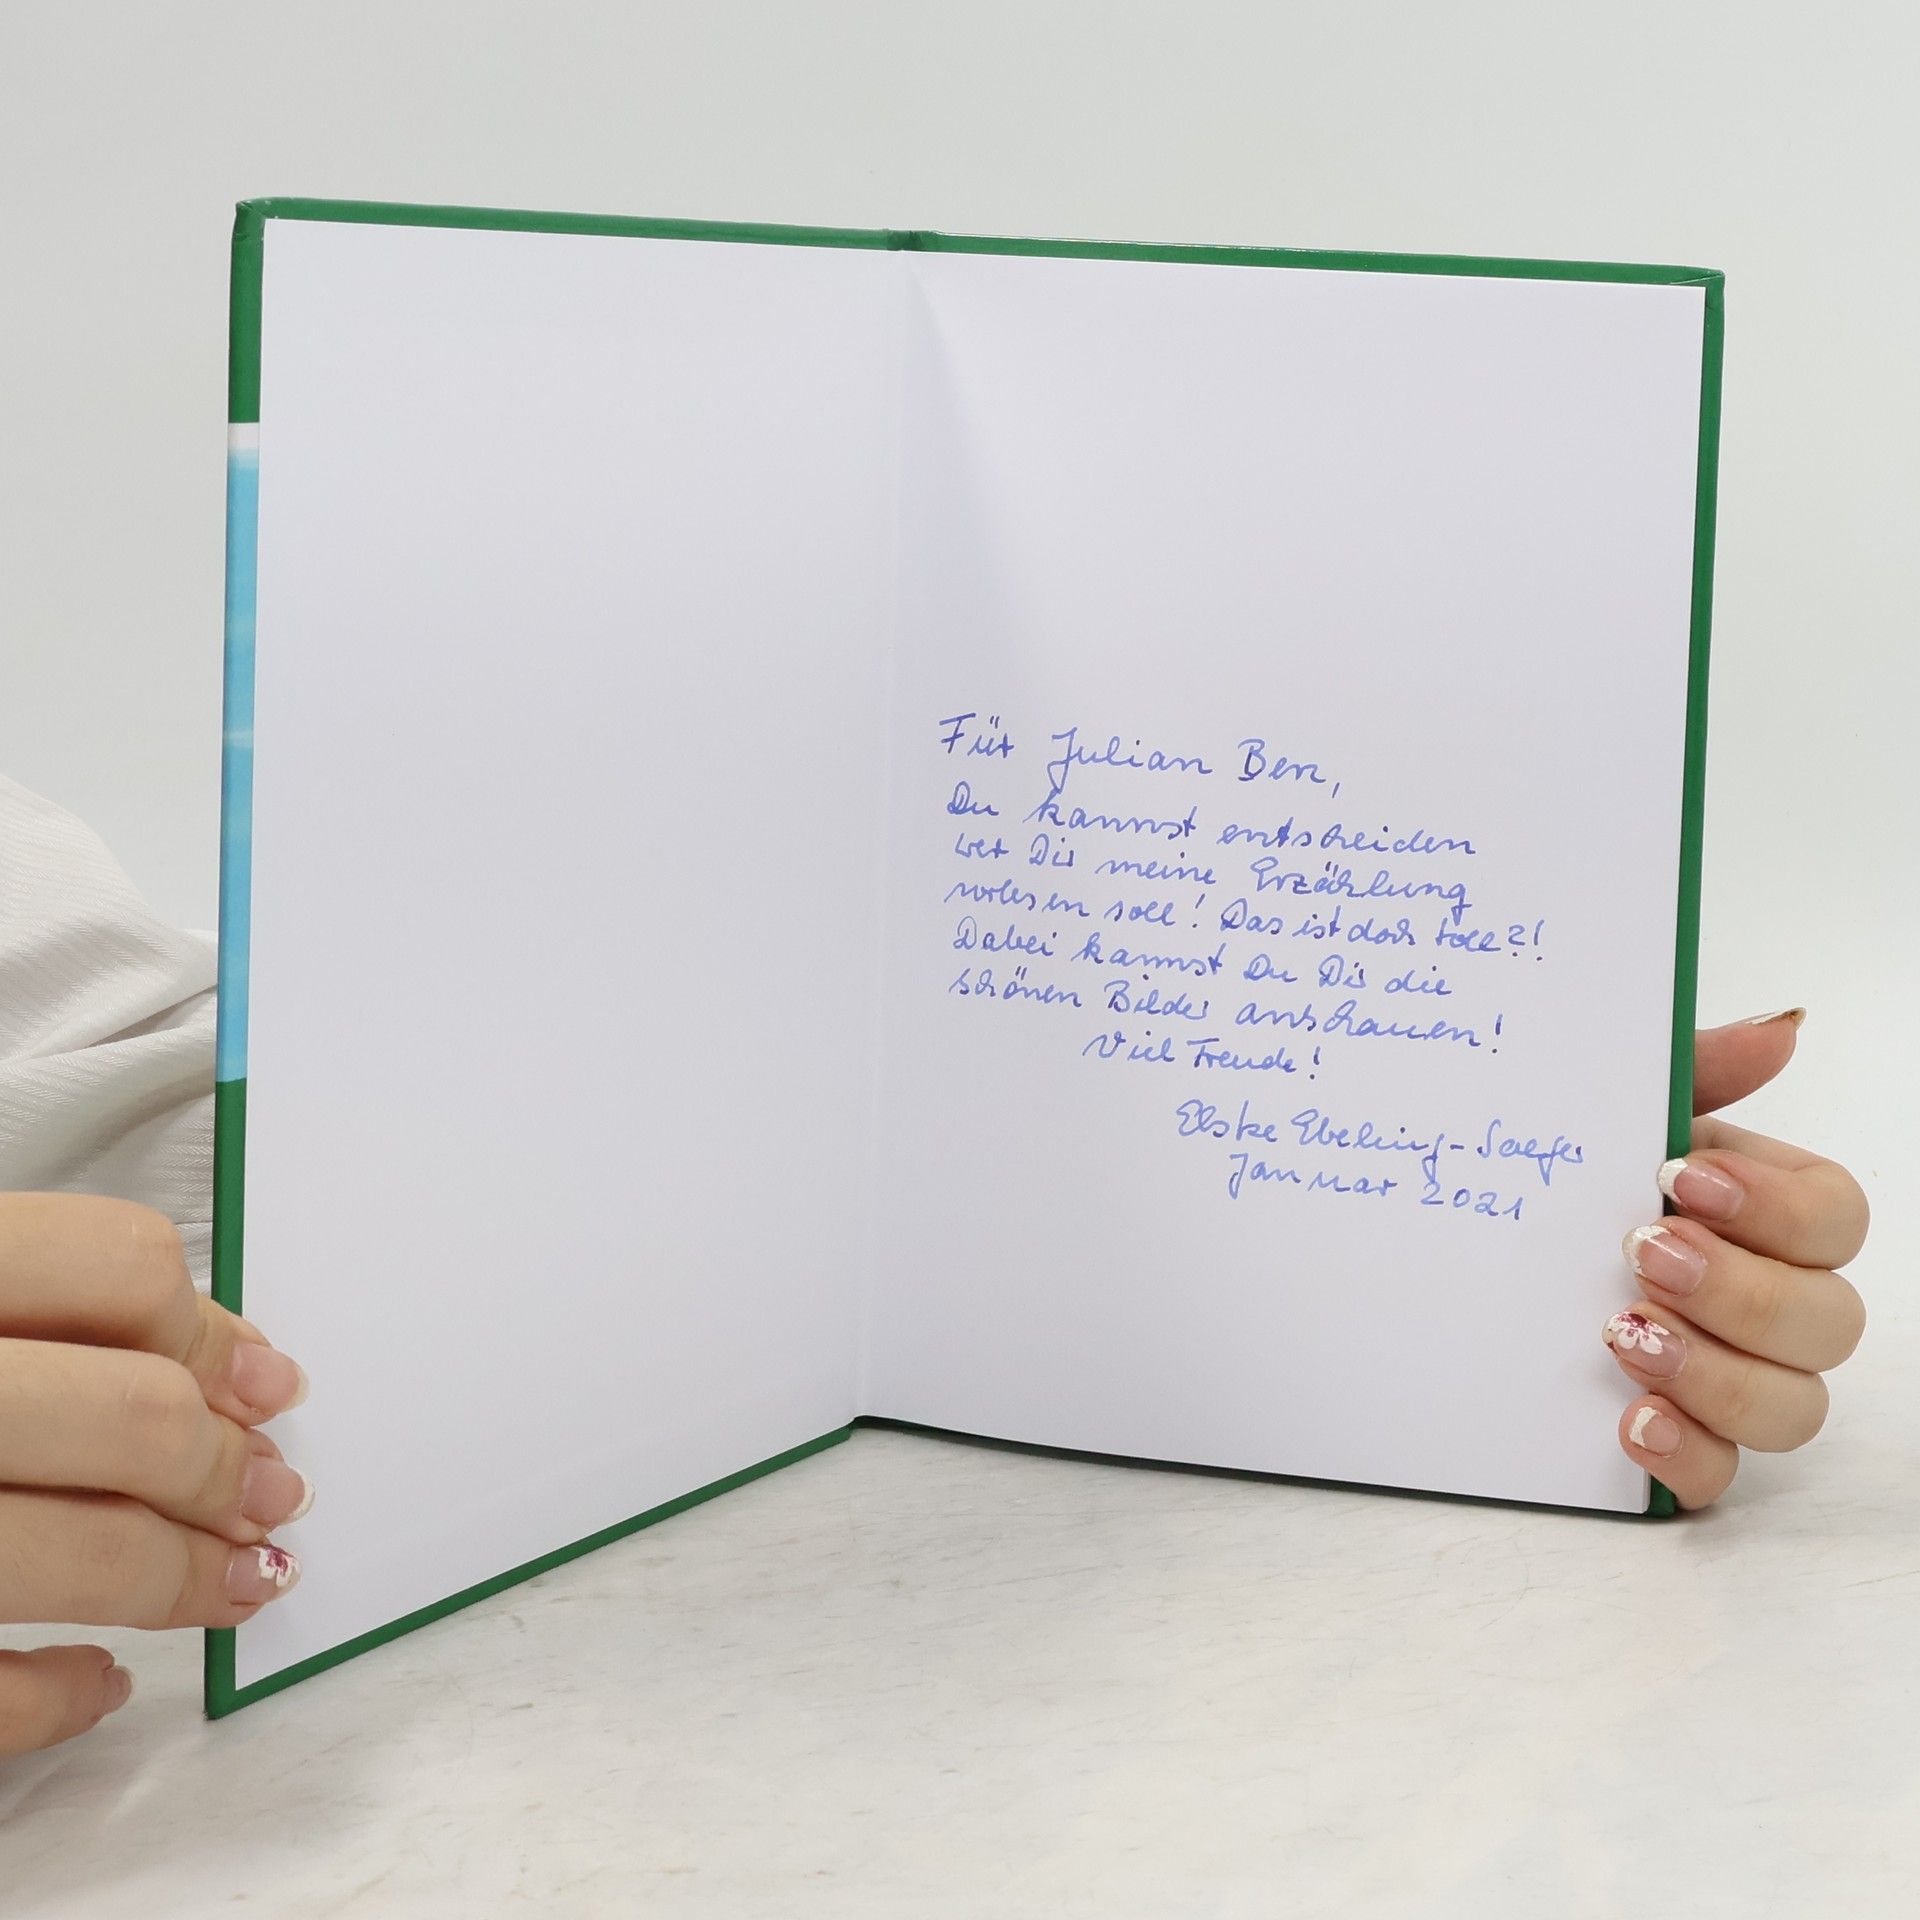 Für Julian Ben,
Du kannst entscheiden
wer Dir meine Erzählung
vorlesen soll! Das ist doch toll?!
Dabei kannst Du Dir die
schönen Bilder anschauen!
Viel Freude!
Elske Ebeling-Saeger
Januar 2021